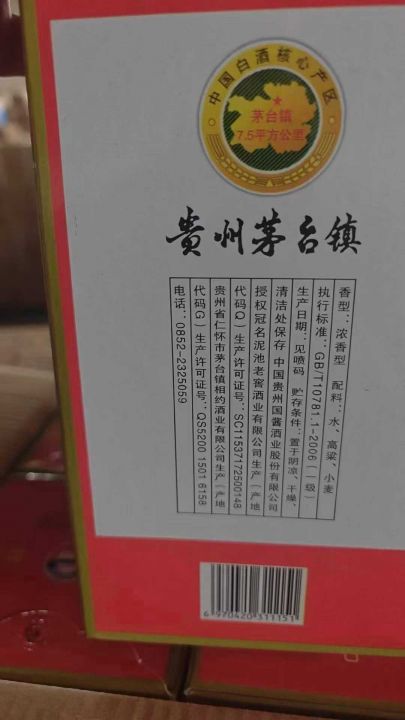 中国白酒核心产区
茅台镇
7.5平方公里
贵州茅台镇
香型：浓香型 配料：水、高粱、小麦
执行标准：GB/T10781.1-2006（一级）
生产日期：见喷码 贮存条件：置于阴凉、干燥、
清洁处保存 中国贵州国酱酒业股份有限公司
授权冠名泥池老窖酒业有限公司生产（产地
代码Q）生产许可证号：SC11537172500148
贵州省仁怀市茅台镇相约酒业有限公司生产（产地
代码G）生产许可证号：QS5200 1501 6158
电话：0852-2325059
6 970420 311151